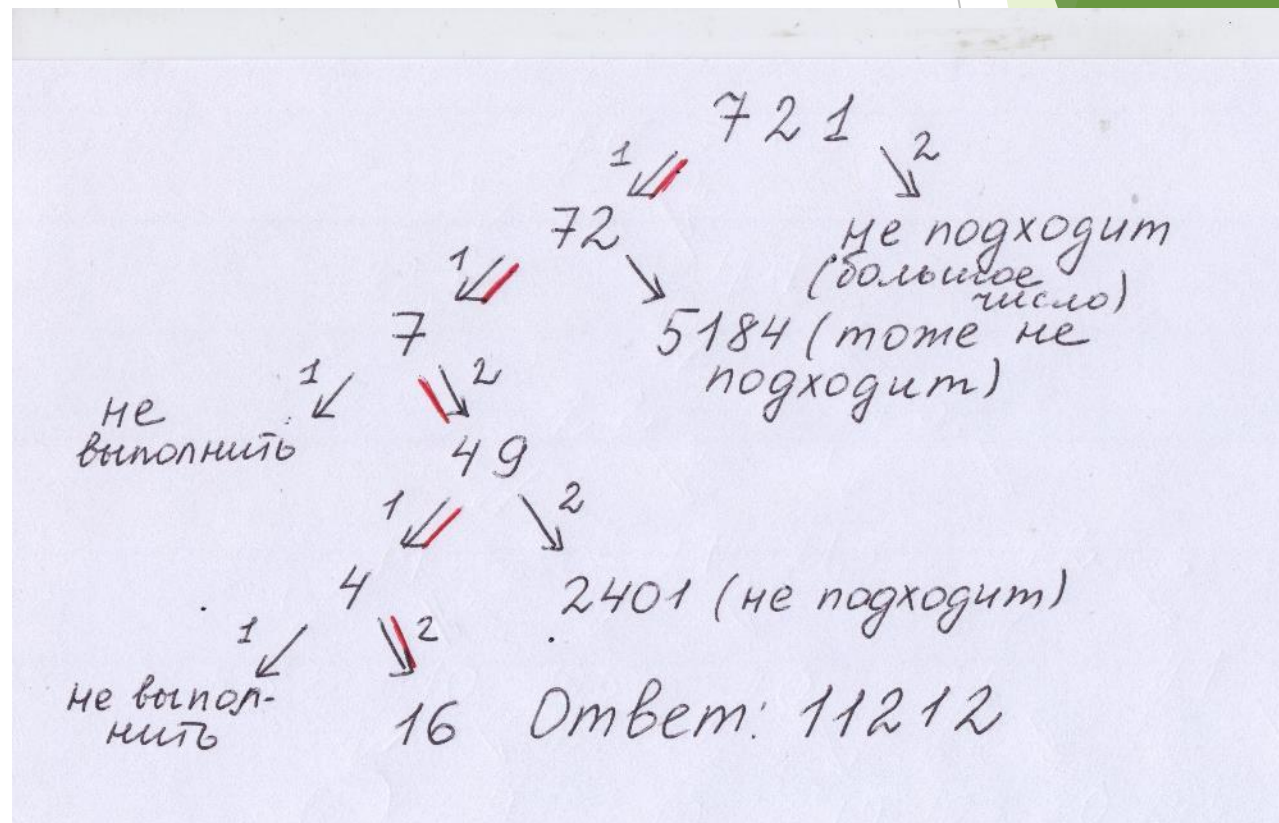 721
1
2
72
не подходит
(большое
число)
1
7
5184 (тоже не
подходит)
1
2
не
выполнить
49
1
2
4
2401 (не подходит)
1
2
не выпол-
нить
16
Ответ: 11212